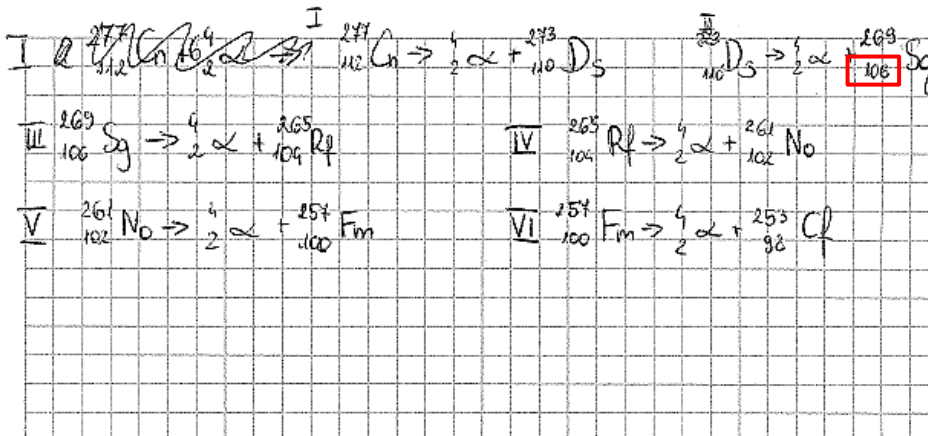 I
I ²⁷⁷₁₁₂Cn → ⁴₂α + ²⁷³₁₁₀Ds II ²⁷³₁₁₀Ds → ⁴₂α + ²⁶⁹₁₀₆Sg
III ²⁶⁹₁₀₆Sg → ⁴₂α + ²⁶⁵₁₀₄Rf IV ²⁶⁵₁₀₄Rf → ⁴₂α + ²⁶¹₁₀₂No
V ²⁶¹₁₀₂No → ⁴₂α + ²⁵⁷₁₀₀Fm VI ²⁵⁷₁₀₀Fm → ⁴₂α + ²⁵³₉₈Cf